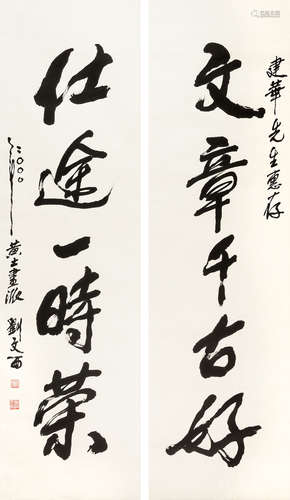 建華先生惠存
文章千古好
仕途一時榮
二〇〇〇年
黄土畫派
劉文西